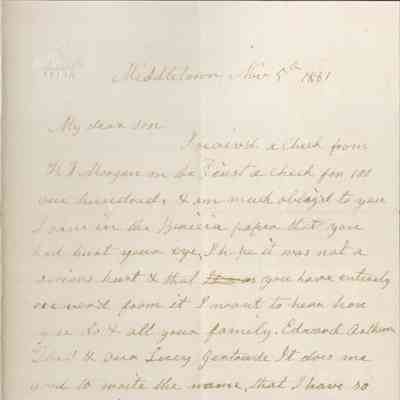 Middletown Nov 5th 1861
My dear son
I receivd a Check from
Morgan on the a Check for 100
one hundred, & am much obligd to you
I saw in the paper that you
had hurt your eye, I hope it was not a
serious hurt & that you have entirely
recoverd from it I want to hear how
you do & all your family. Edward Anthem
& our Lucy Gertrude It does me
good to write the name, that I have so